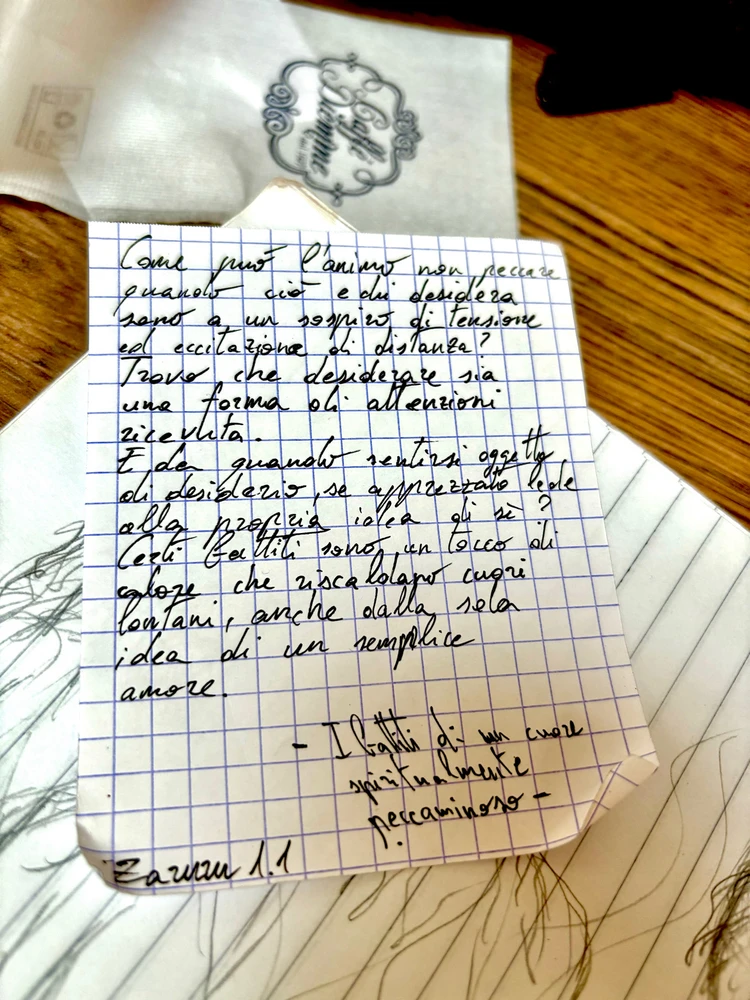 Caffè
Diemme
Come può l'animo non peccare
quando ciò e chi desidera
sono a un sospiro di tensione
ed eccitazione di distanza?
Trovo che desiderare sia
una forma di attenzioni
ricevuta.
E da quando sentirsi oggetto
di desiderio, se apprezzato lede
alla propria idea di sè?
Certi battiti sono un tocco di
calore che riscaldano cuori
lontani, anche dalla sola
idea di un semplice
amore.
- I battiti di un cuore
spiritualmente
peccaminoso -
1.1